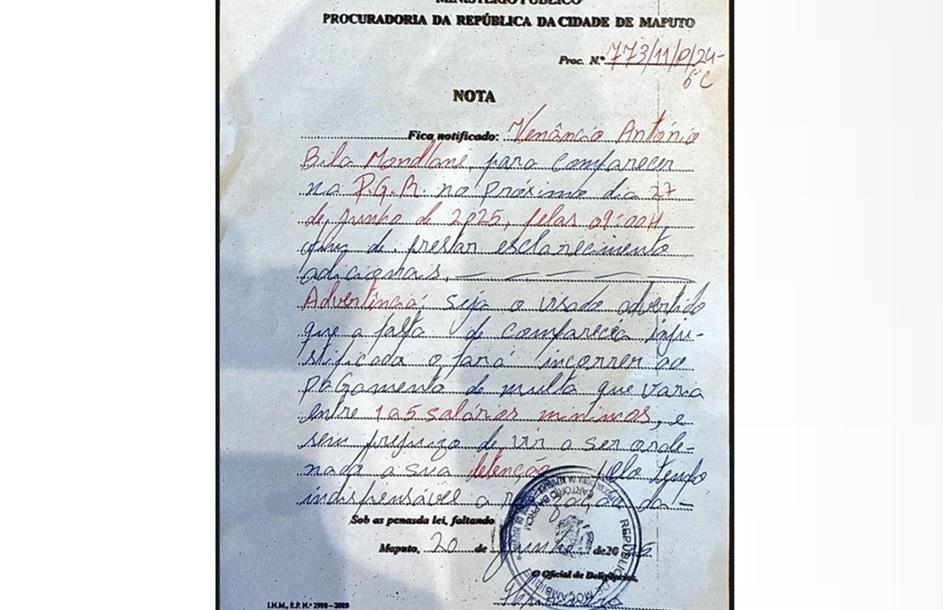 MINISTÉRIO PÚBLICO
PROCURADORIA DA REPÚBLICA DA CIDADE DE MAPUTO
Proc. N.º 773/11/P/24-
6ªC
NOTA
Fica notificado: Venâncio António
Bila Mondlane, para comparecer
na P.G.R. no próximo dia 27
de Junho de 2025, pelas 09:00H
afim de prestar esclarecimento
adicionais.
Advertência: seja o visado advertido
que a falta de comparecia inju-
stificada o fará incorrer ao
pagamento de multa que varia
entre 1 a 5 salários mínimos, e
sem prejuizo de vir a ser orde-
nada a sua detenção tempo
indispensáveis a da
Sob as penas da lei, faltando
Maputo, 20 de Junho de 20
O Oficial de Deligências,
REPÚBLICA MOÇAMBIQUE
I.N.M., E.P. N.º 2900 - 2019